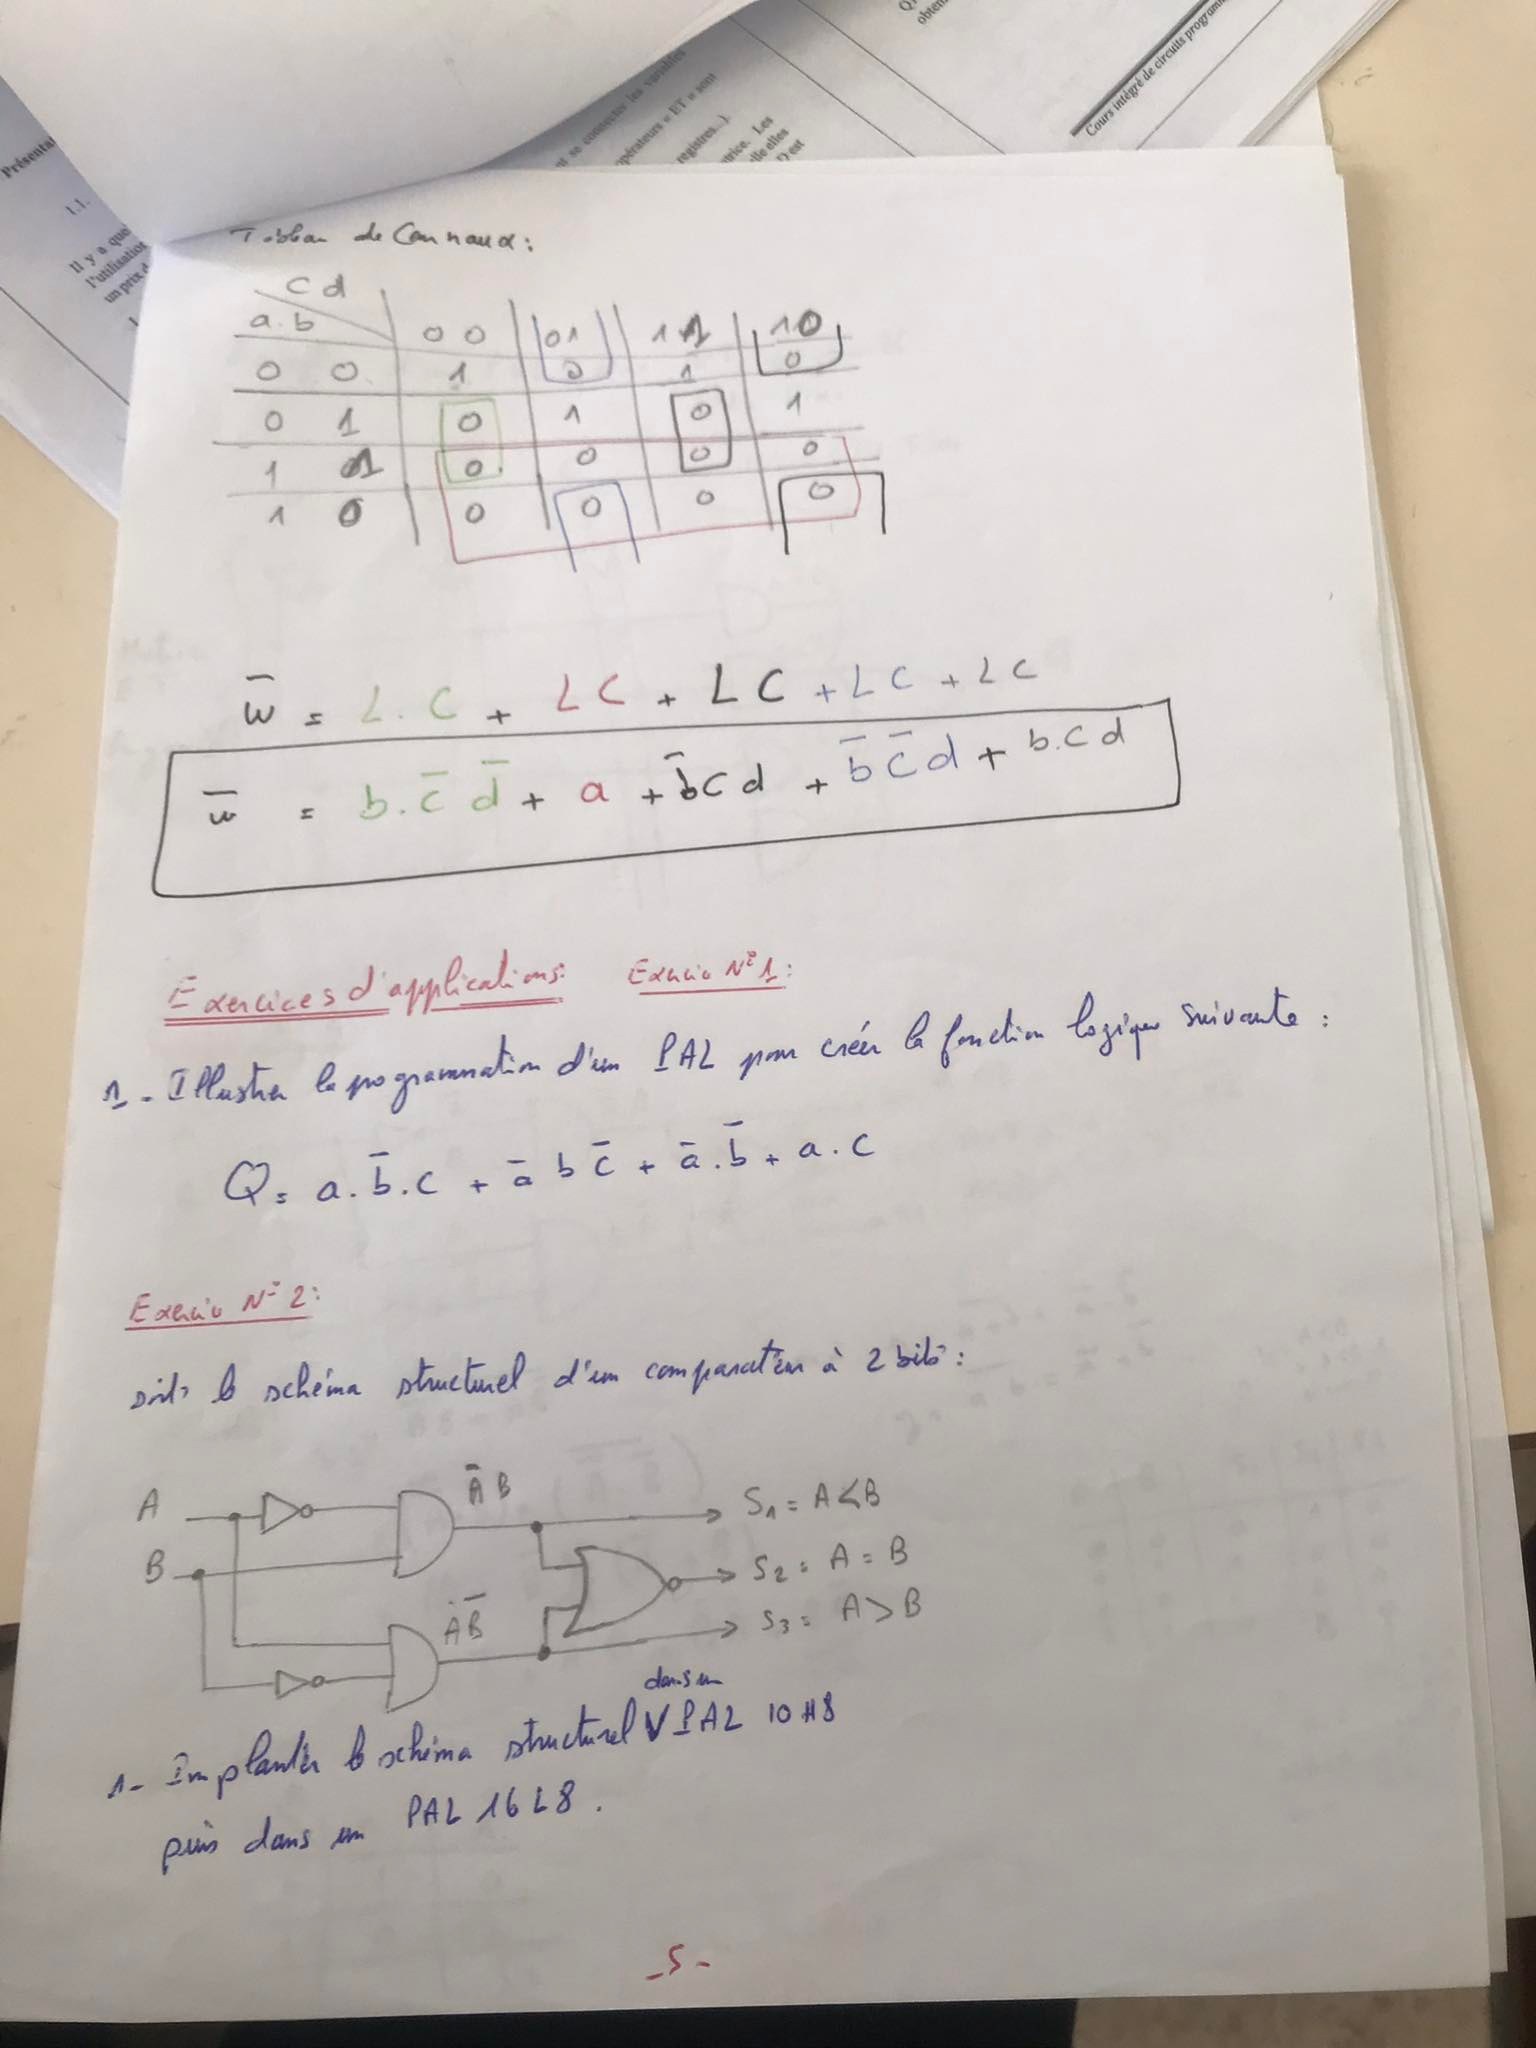 Présenta
1.1.
Il y a que
l'utilisation
un prix d
se connecter les variables
opérateurs « ET » sont
registres...).
trice. Les
lle elles
D est
obten
Cours intégré de circuits program
Tableau de Carnaux :
c d
a.b 0 0 01 11 10
0 0 1 0 1 0
0 1 0 1 0 1
1 1 0 0 0 0
1 0 0 0 0 0
w̅ = L.C + LC + LC + LC + LC
w̅ = b.c̅ d̅ + a + b̅cd + b̅ c̅ d + b.cd
Exercices d'applications: Exercice N°1 :
1 - Illustrer la programmation d'un PAL pour créer la fonction logique suivante :
Q = a.b̅.c + a̅ b c̅ + a̅.b̅ + a.c
Exercice N° 2 :
soit le schéma structurel d'un comparateur à 2 bits :
A
A̅ B
S1 = A<B
B
S2 = A = B
AB̅
S3 = A > B
dans un
1- Implanter le schéma structurel V PAL 10H8
puis dans un PAL 16L8.
-5-